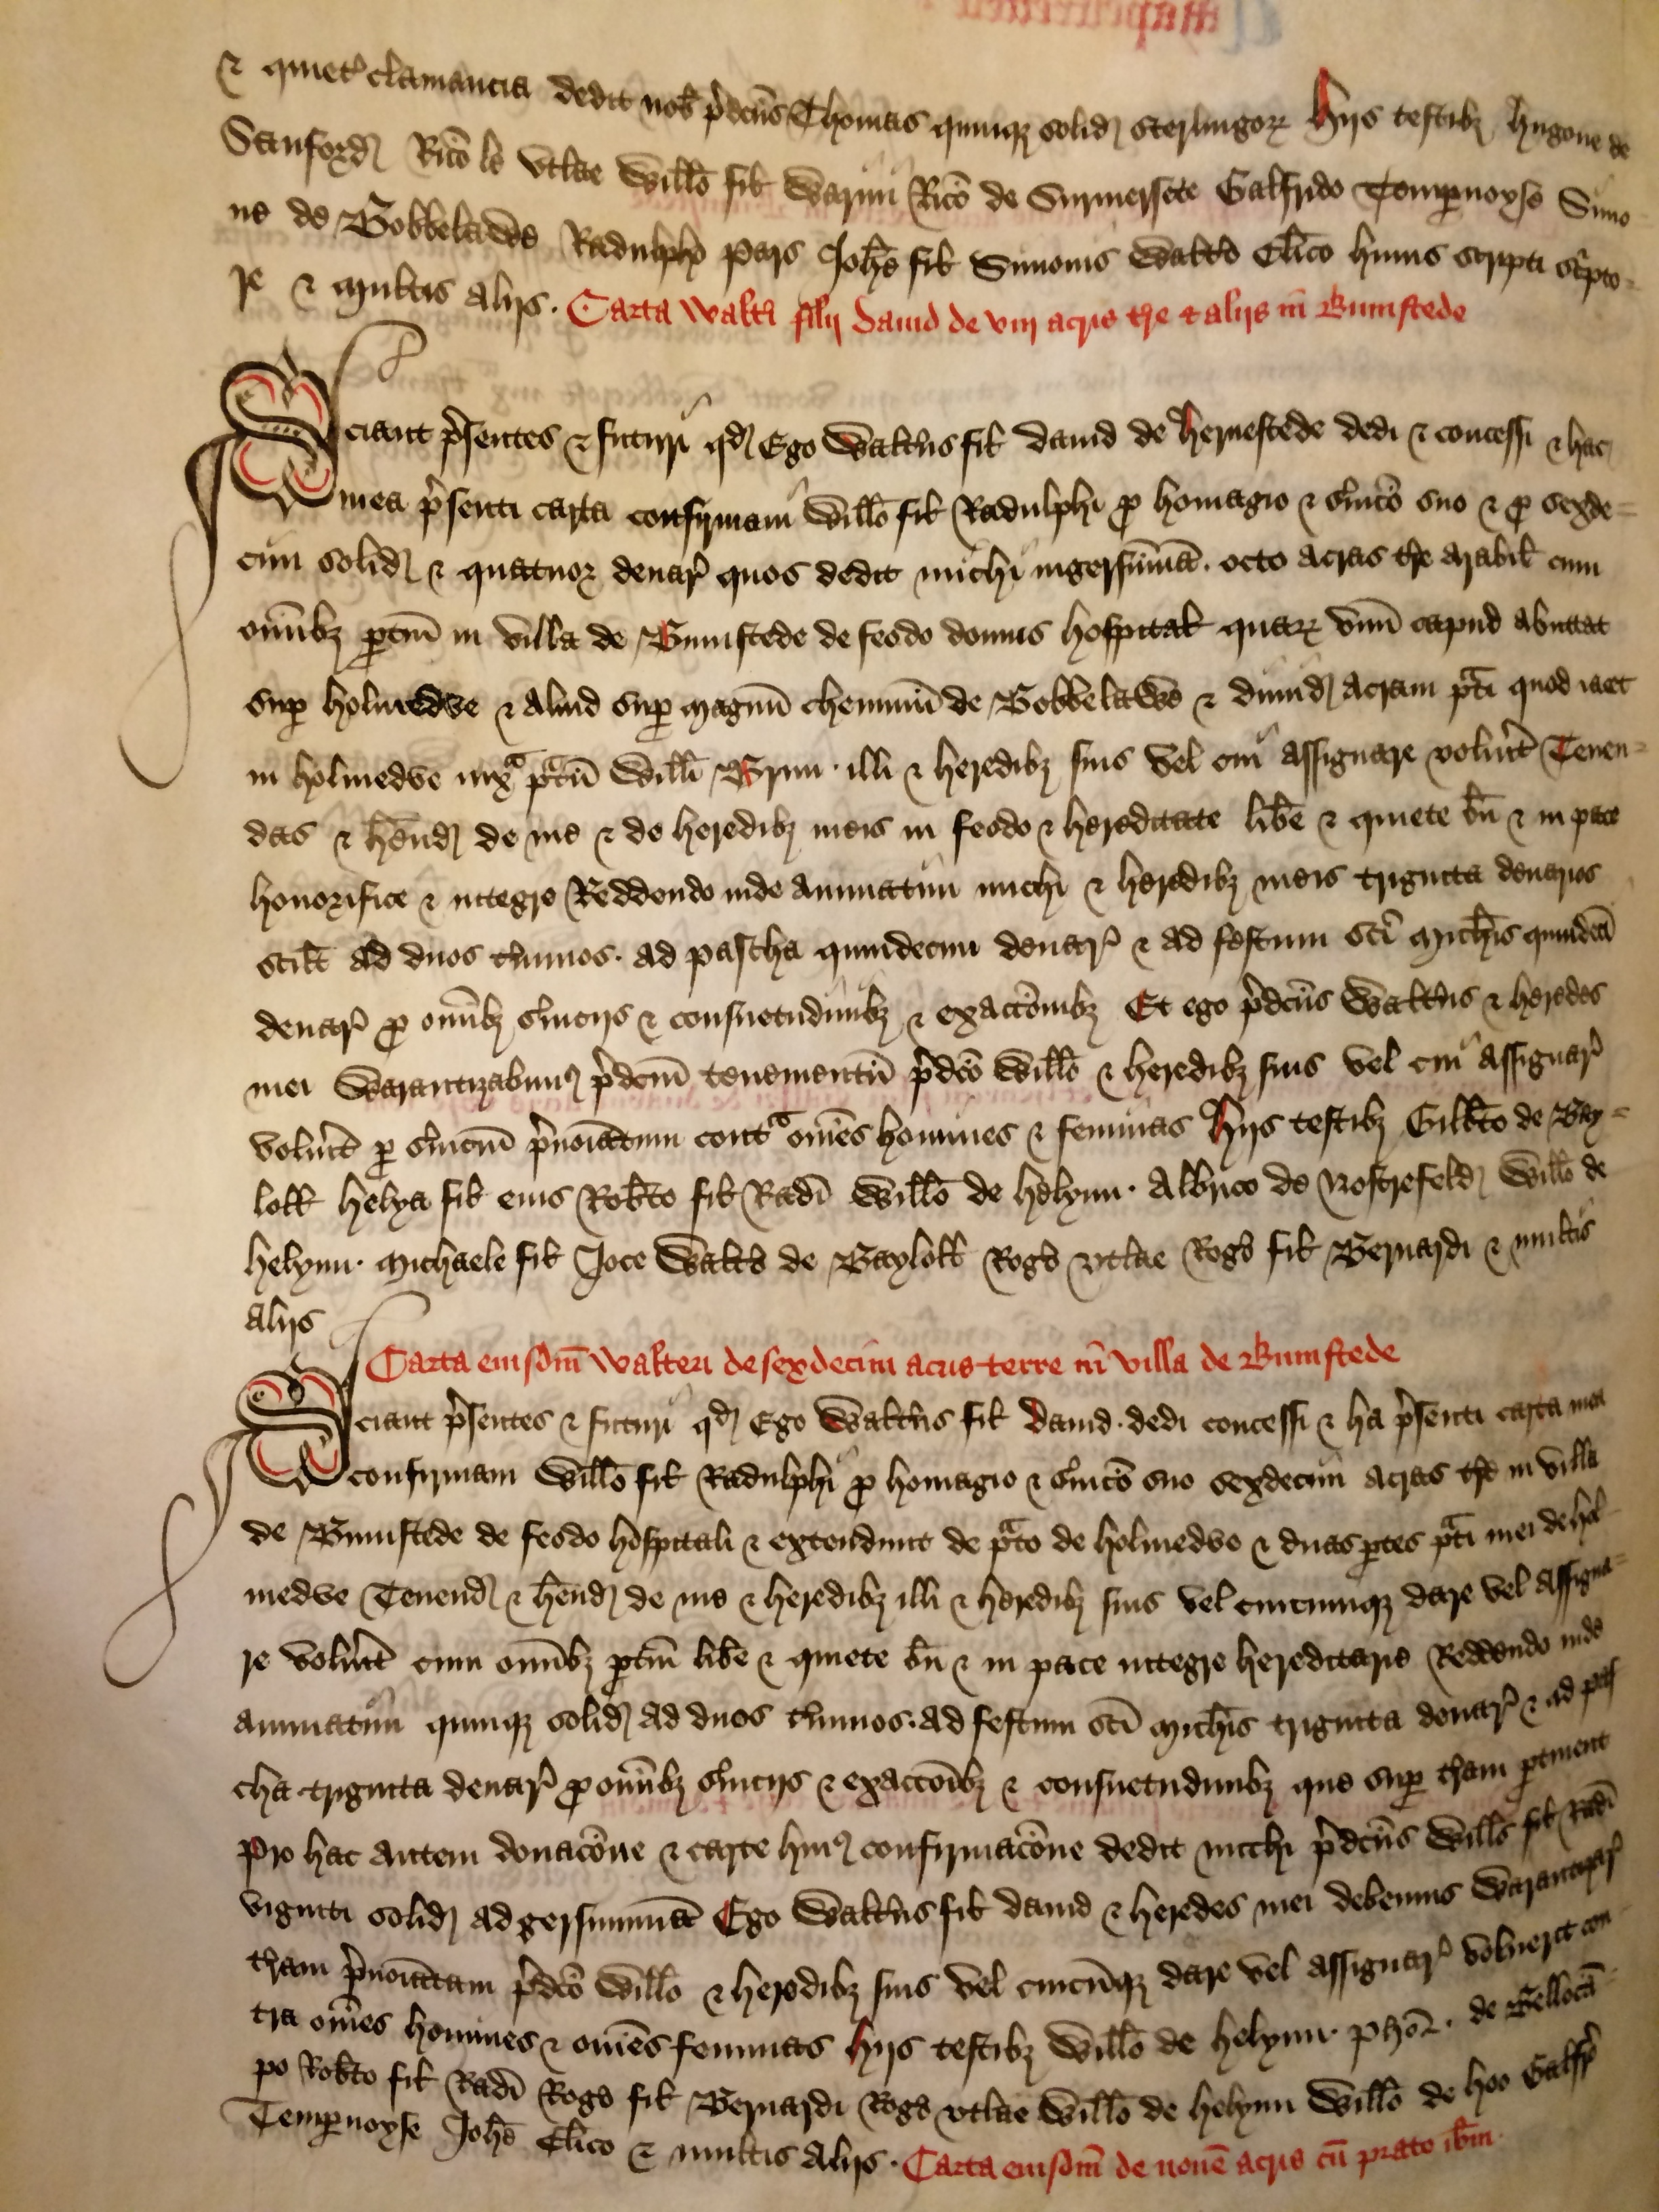 ⁊ quiet' clamancia dedit nob p̄dcūs Thomas quinqȝ solid sterlingoꝝ Hijs testibȝ hugone de
Sanford Ricō le Utlae Willō fil Warini Ricō de Surmersete Galfrido Tempnoyse Simo
ne de Bobbelawe Radulpho Pays Johē fil Simonis Waltō Clico huius scripti scpto
re ⁊ multis alijs. Carta Walti filij Dauid de viij acris tre ⁊ alijs in Bumstede
Sciant p̄sentes ⁊ futuri qd Ego Waltus fil dauid de hernestede dedi ⁊ concessi ⁊ hac
mea p̄senti carta confirmaui Willō fil Radulphi ꝓ homagio ⁊ s̄uicō suo ⁊ ꝓ sexde=
cim solid ⁊ quatuor denar quos dedit michi ingerssūmā. octo acras tre arabil cum
omībȝ ꝑtin in villa de Bumstede de feodo domus hospital quaꝝ vnū capud abuttat
suꝑ holmedwe ⁊ aliud suꝑ magnū cheminū de Bobbelawe ⁊ dimid acram p̄ti quod iacet
in holmedwe iuxᵃ p̄tū Willi Brun. illi ⁊ heredibȝ suis vel cui assignare volūit Tenen=
das ⁊ hēnd de me ⁊ de heredibȝ meis in feodo ⁊ hereditate libe ⁊ quiete bn̄ ⁊ in pace
honorifice ⁊ integre Reddendo inde annuatim michi ⁊ heredibȝ meis triginta denarios
scilt ad duos t̄minos. ad pascha quindecim denar ⁊ ad festum scī Michis quindecī
denar ꝓ omībȝ s̄uicijs ⁊ consuetudinibȝ ⁊ exactōnibȝ Et ego p̄dcūs Waltus ⁊ heredes
mei Warantizabimꝰ p̄dcm̄ tenementū p̄dcō Willō ⁊ heredibȝ suis vel cui assignar
volūit ꝑ s̄uiciū p̄noiatum contᵃ omēs homines ⁊ feminas Hijs testibȝ Gilbto de Bay=
loll helya fil eius Robto fil Radi Willō de helynn. Albrico de Nostrefeld Willō de
helynn. Michaele fil Joce Waltō de Bayloll Rogo vtlae Rogo fil Bernardi ⁊ multis
alijs
Carta eiusdm̄ Walteri de sexdecim acris terre in villa de Bumstede
Sciant p̄sentes ⁊ futuri qd Ego Waltus fil Dauid. dedi concessi ⁊ ha p̄senti carta mea
confirmaui Willō fil Radulphi ꝓ homagio ⁊ s̄uicō suo sexdecim acras tre in villa
de Bumstede de feodo hospitali ⁊ extendunt de p̄to de holmedwe ⁊ duas ꝑtes p̄ti mei de hol
medwe Tenend ⁊ hēnd de me ⁊ heredibȝ illi ⁊ heredibȝ suis vel cuicumqȝ dare vel assigna=
re volūit cum omībȝ ꝑtin libe ⁊ quiete bn̄ ⁊ in pace integre hereditarie Reddendo inde
annuatim quinqȝ solid ad duos t̄minos. ad festum scī Michis triginta denar ⁊ ad pas
cha triginta denar ꝓ omībȝ s̄uicijs ⁊ exaccōibȝ ⁊ consuetudinibȝ que suꝑ tram ꝑtinent
Pro hac autem donacōne ⁊ carte huiꝰ confirmacōne dedit michi p̄dcūs Willus fil Radi
viginti solid ad gerssummā Ego Waltus fil dauid ⁊ heredes mei debemus Warantizar
tram p̄noiatam p̄dcō Willō ⁊ heredibȝ suis vel cuicūqȝ dare vel assignar voluerit con
tra omēs homines ⁊ omēs feminas Hijs testibȝ Willō de helynn. de Bellocā
po Robto fil Radi Rogo fil Bernardi Rogo vtlae Willō de helynn Willō de hoo Galfr
Tempnoyse Johē Clico ⁊ multis alijs. Carta eiusdm̄ de nouē acris cū prato ibm.